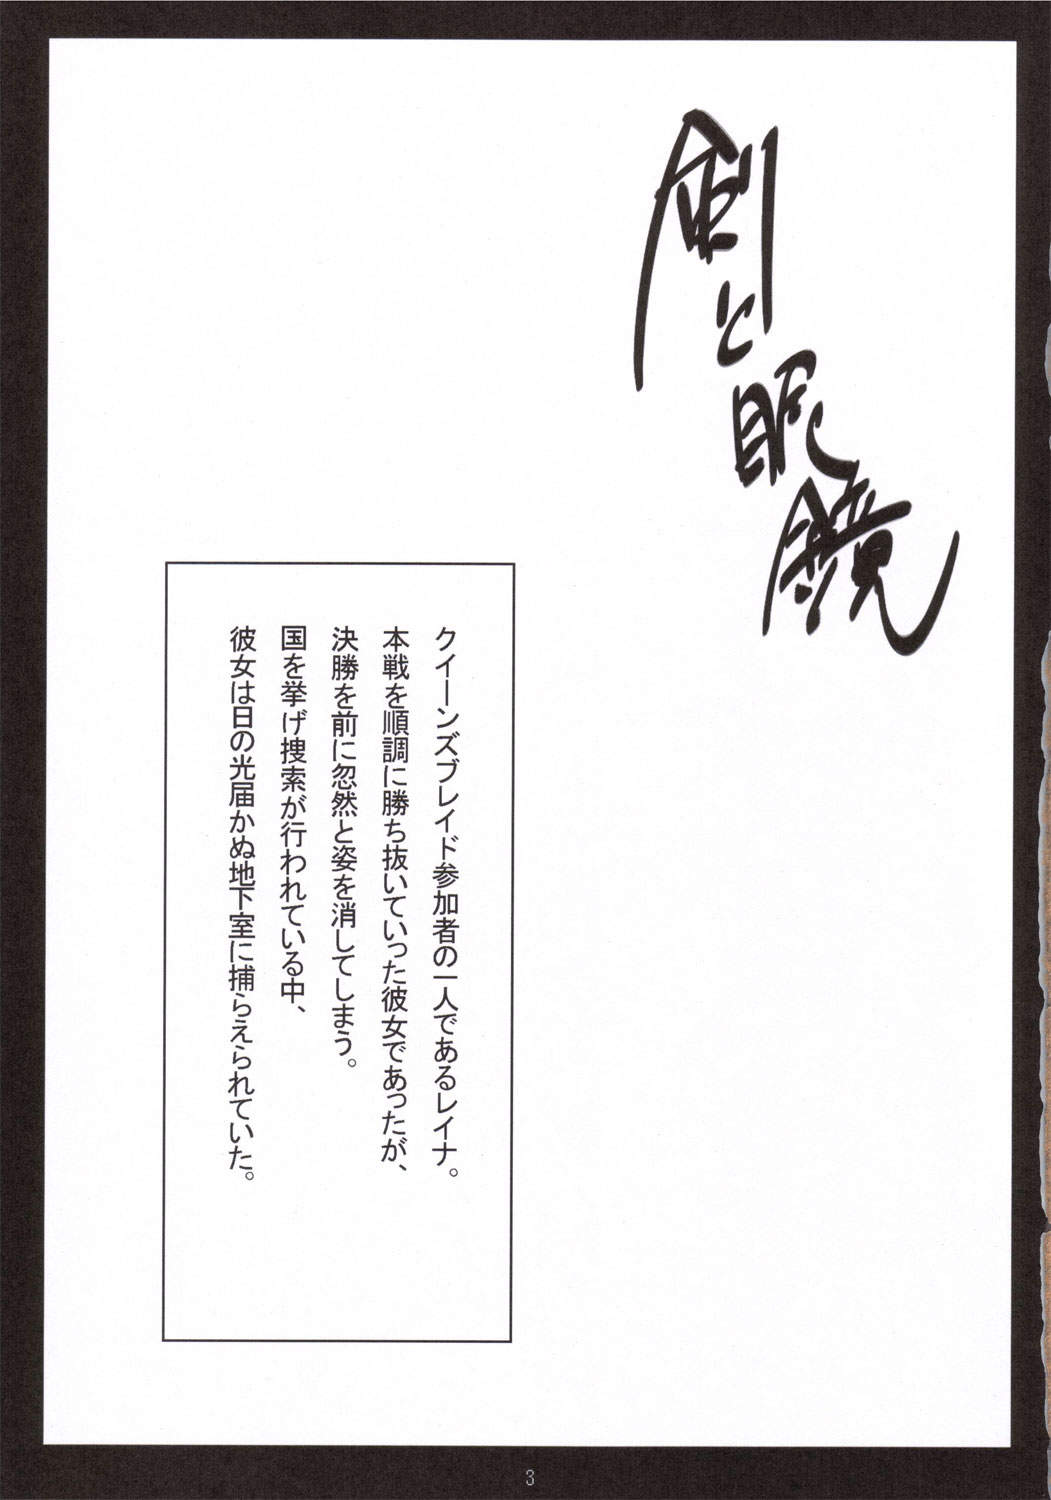 剣と眼鏡
クイーンズブレイド参加者の一人であるレイナ。
本戦を順調に勝ち抜いていった彼女であったが、
決勝を前に忽然と姿を消してしまう。
国を挙げ捜索が行われている中、
彼女は日の光届かぬ地下室に捕らえられていた。
3